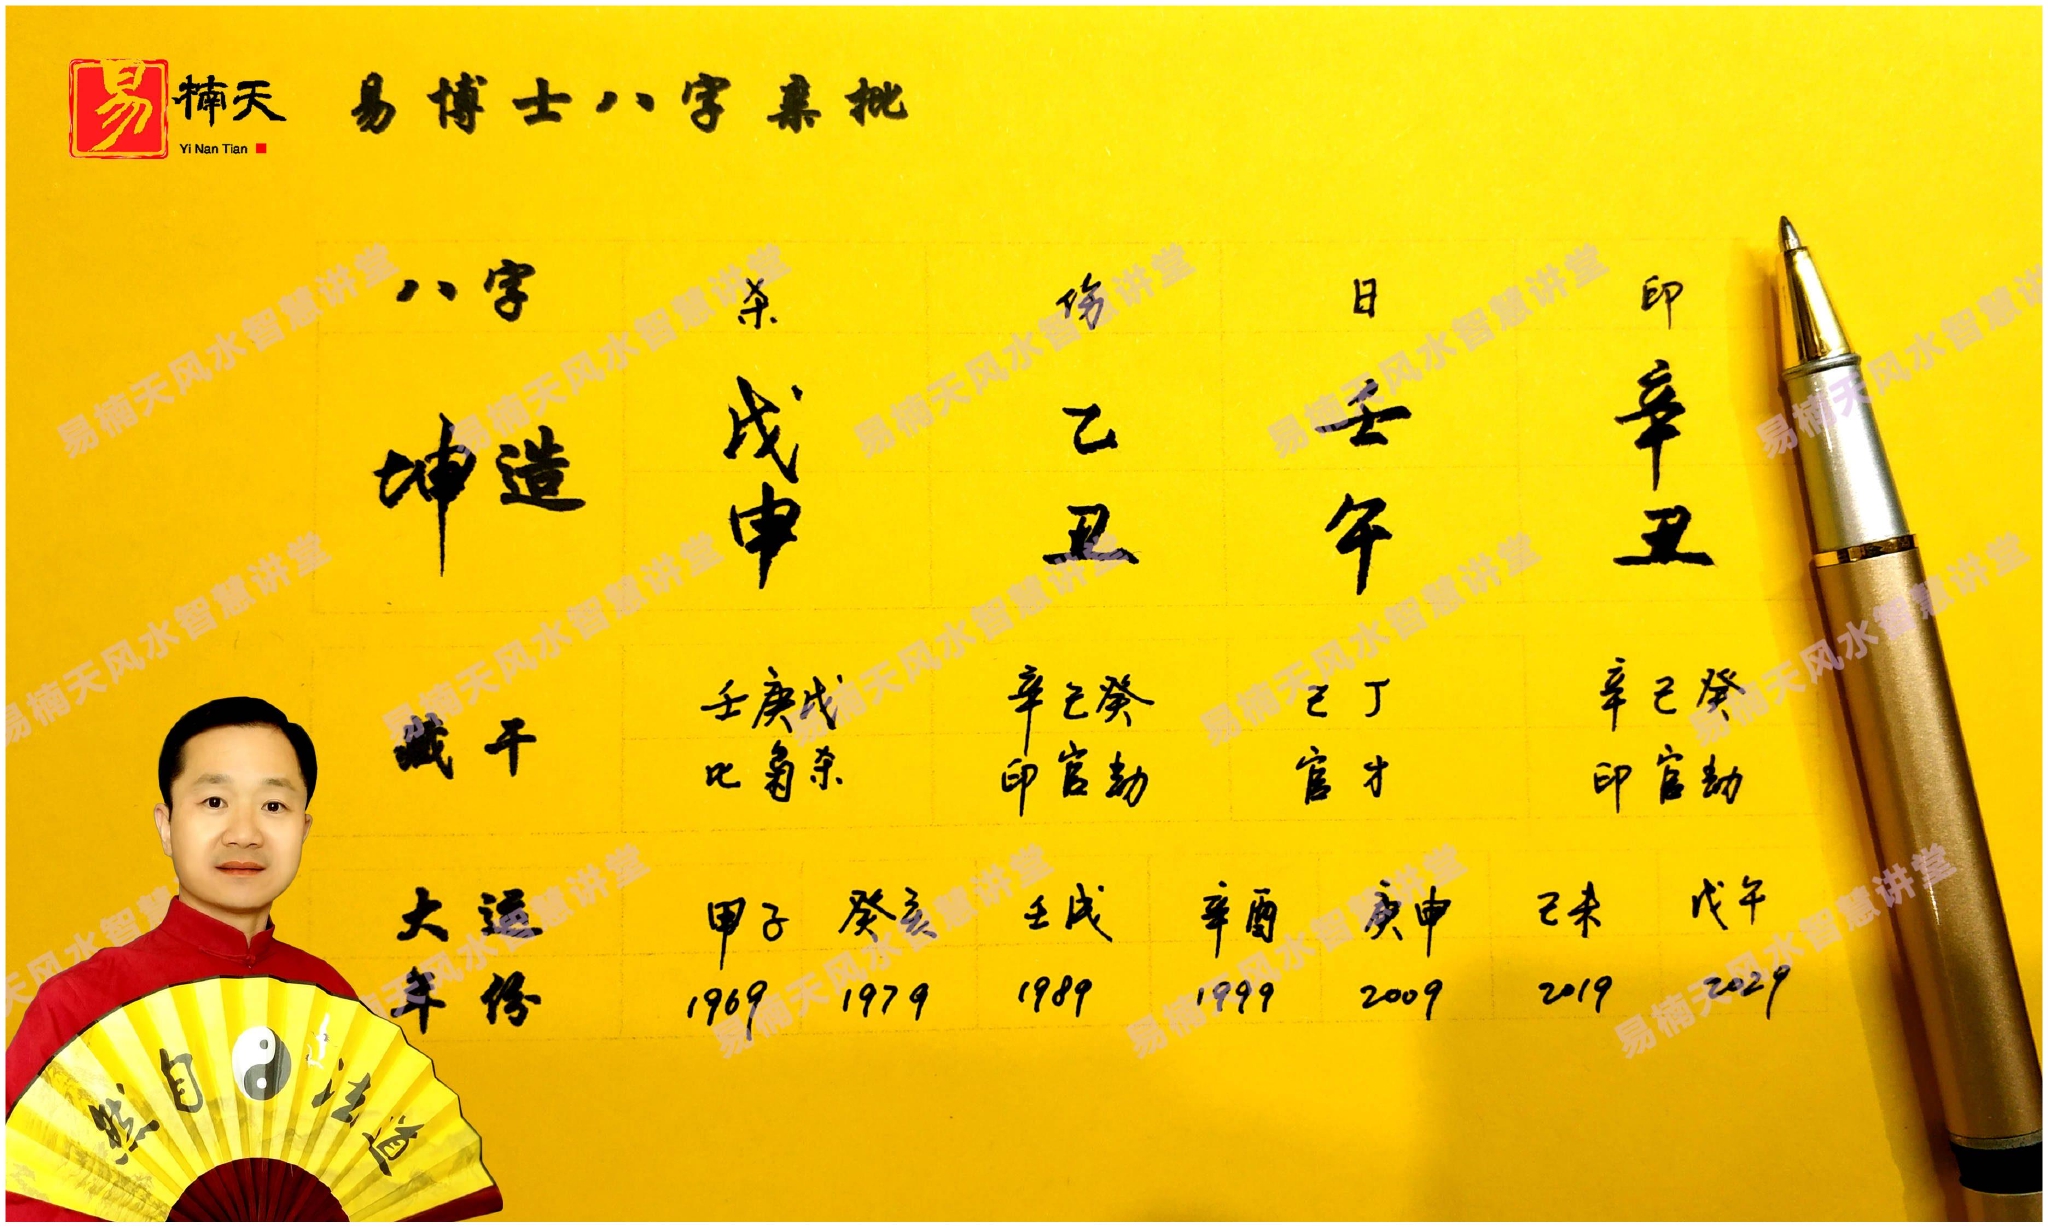 易 楠天 易博士八字亲批
Yi Nan Tian
八字 杀 伤 日 印
坤造 戊 乙 壬 辛
申 丑 午 丑
藏干 壬庚戊 辛己癸 己丁 辛己癸
比枭杀 印官劫 官才 印官劫
大运 甲子 癸亥 壬戌 辛酉 庚申 己未 戊午
年份 1969 1979 1989 1999 2009 2019 2029
然自法道
易楠天风水智慧讲堂